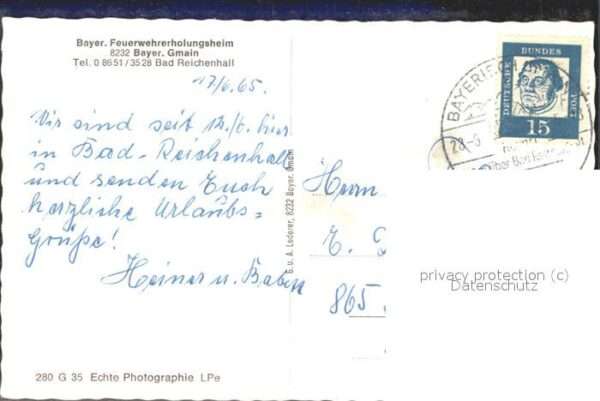 Bayer. Feuerwehrerholungsheim
8232 Bayer. Gmain
Tel. 0 86 51 / 35 28 Bad Reichenhall
17/6.65.
Wir sind seit 12./6. hier
in Bad-Reichenhall
und senden Euch
herzliche Urlaubs=
grüße!
Heiner u.
280 G 35 Echte Photographie LPe
G. u. A. Lederer, 8232 Bayer. Gmain
BAYERISCH
28.-6
über Bad
DEUTSCHE
BUNDES
POST
15
Herrn
E.
865
privacy protection (c)
Datenschutz